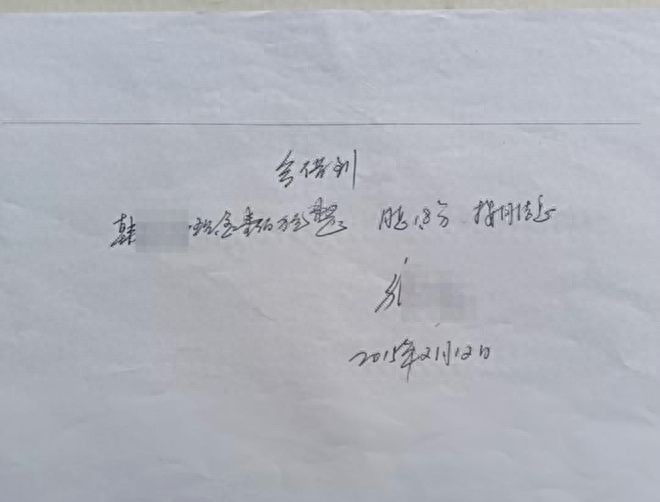 今借到
韩 现金壹佰万元整 月息1.8分 按月结息
2015年2月12日